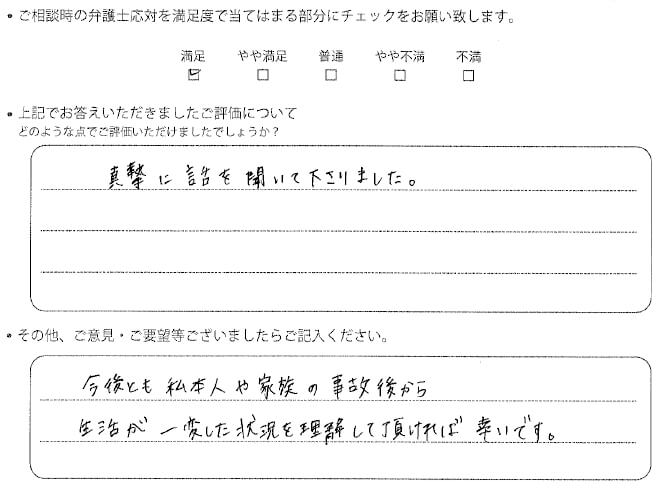 • ご相談時の弁護士応対を満足度で当てはまる部分にチェックをお願い致します。
満足 やや満足 普通 やや不満 不満
☑ □ □ □ □
• 上記でお答えいただきましたご評価について
どのような点でご評価いただけましたでしょうか？
真摯に話を聞いて下さりました。
• その他、ご意見・ご要望等ございましたらご記入ください。
今後とも私本人や家族の事故後から
生活が一変した状況を理解して頂ければ幸いです。